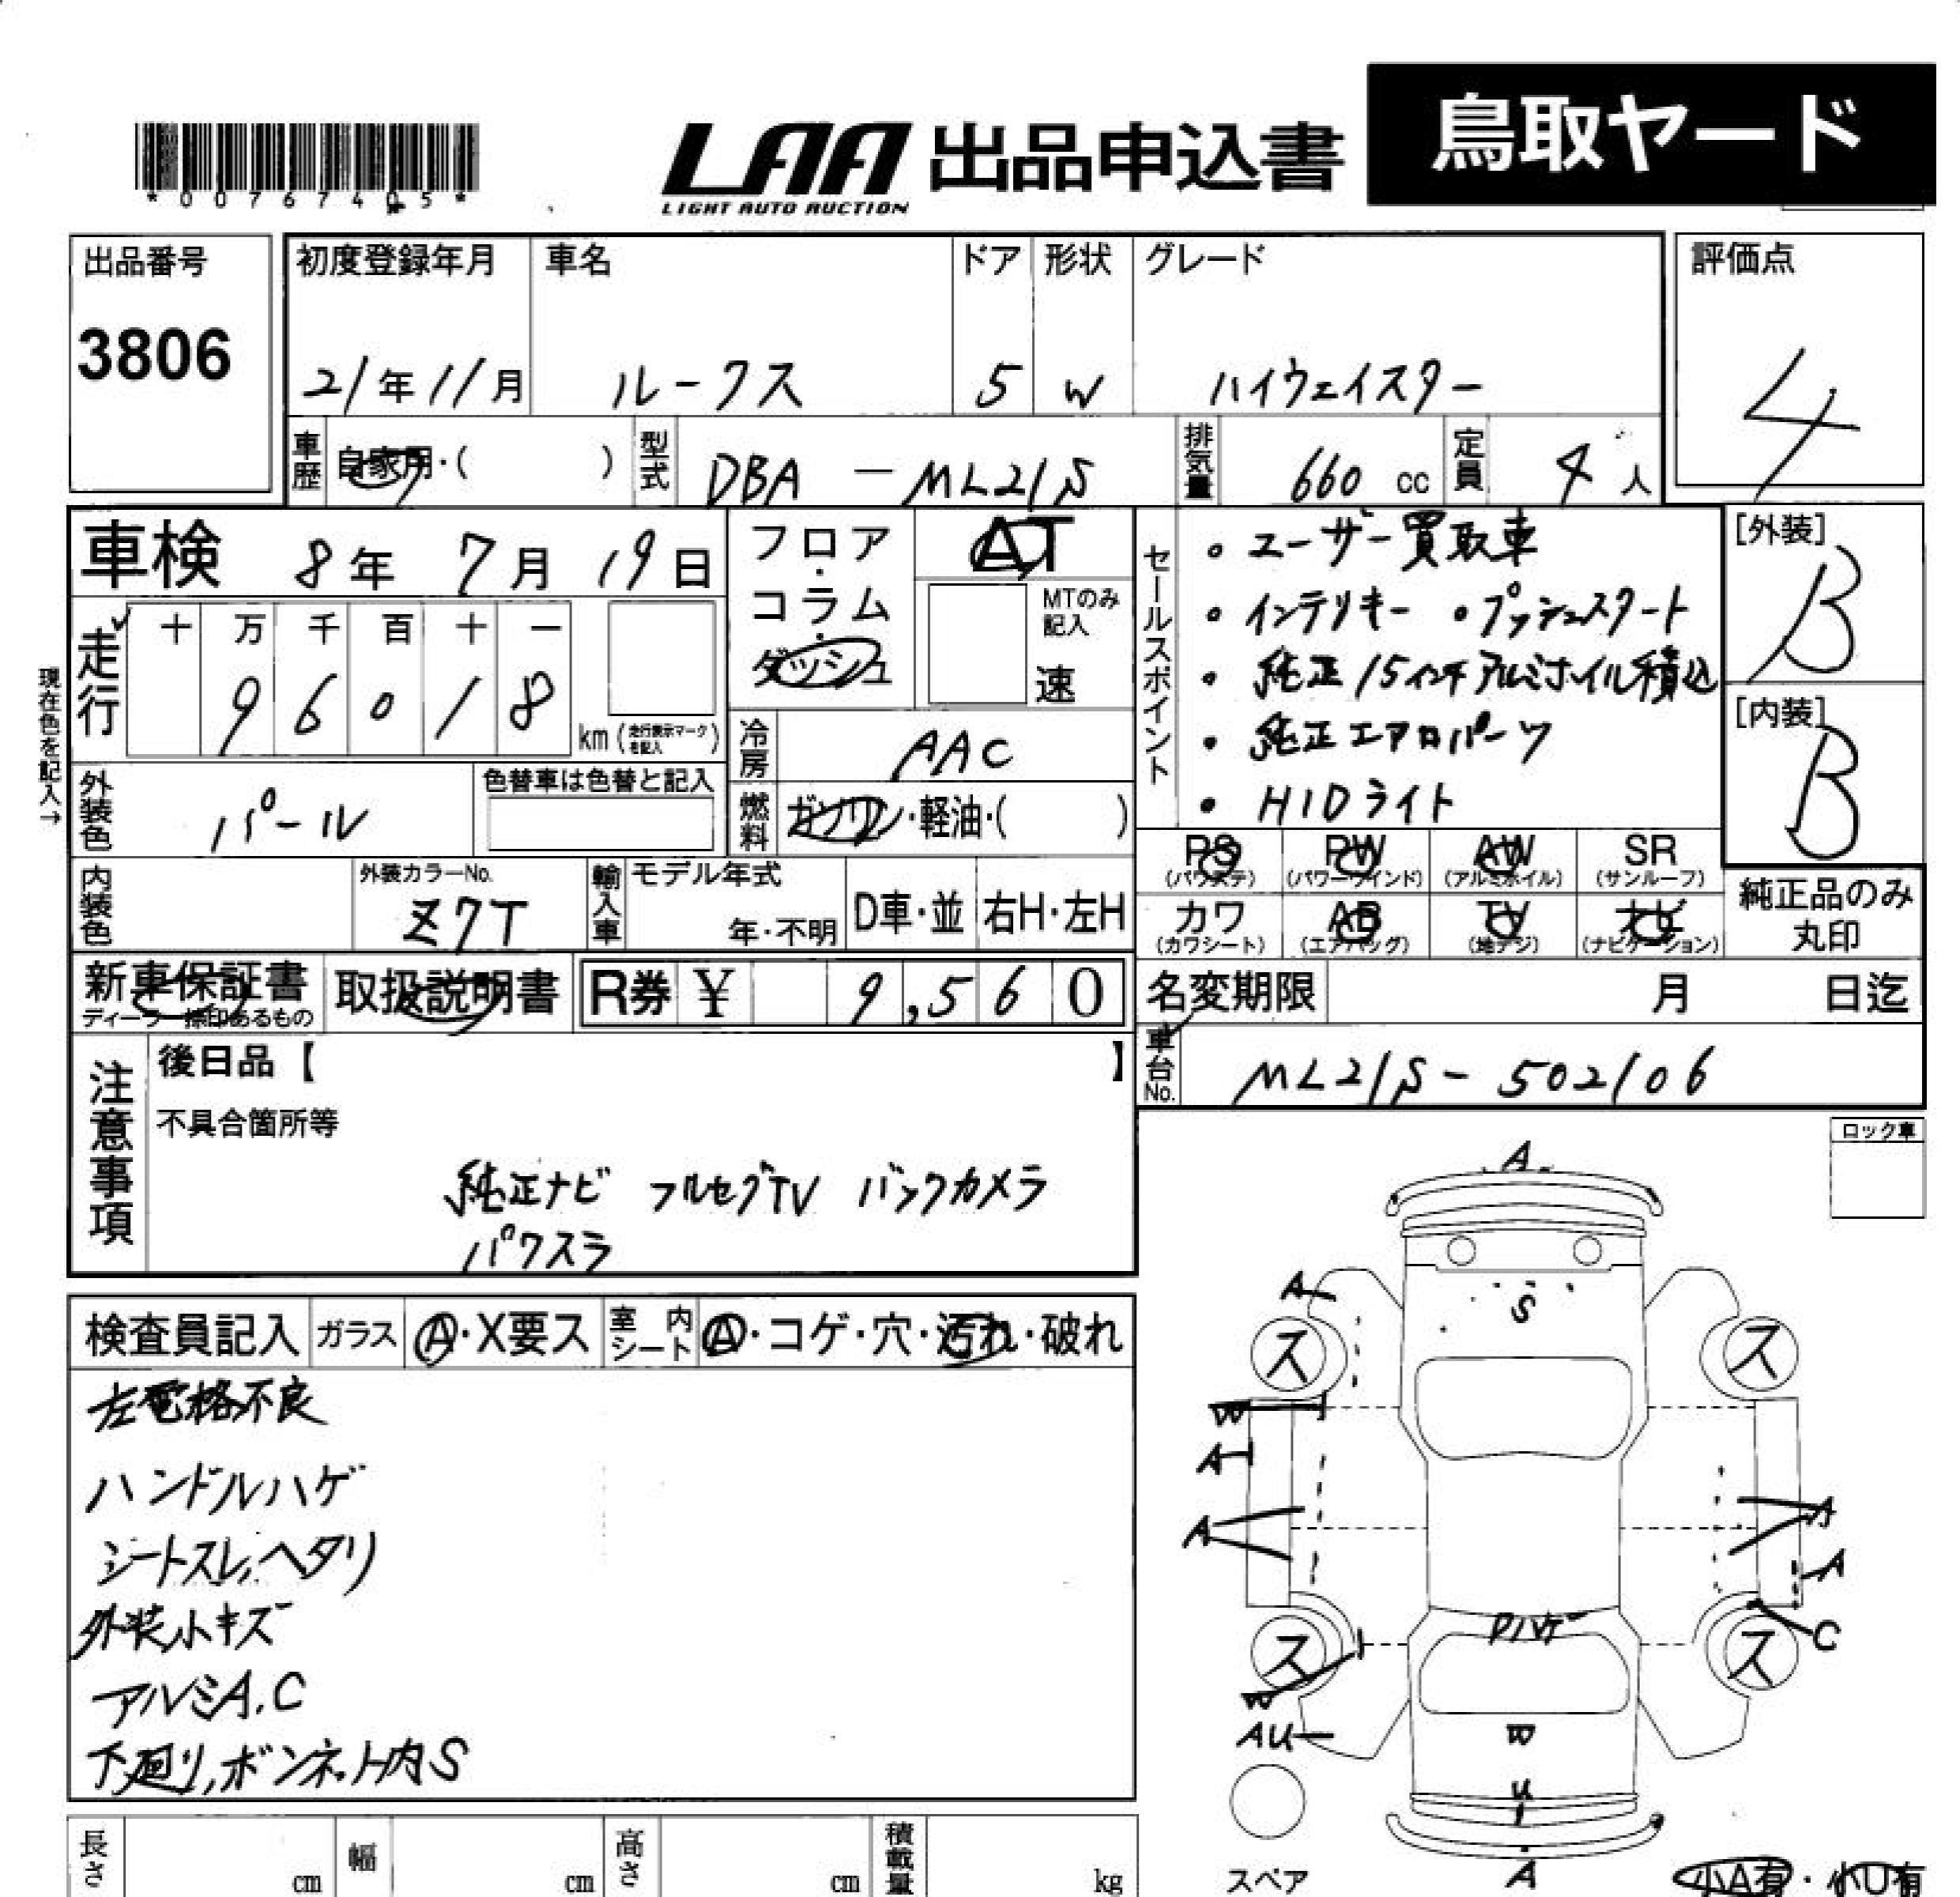 *00767405*
LAA 出品申込書
LIGHT AUTO AUCTION
鳥取ヤード
出品番号
3806
初度登録年月
21年11月
車名
ルークス
ドア
5
形状
W
グレード
ハイウェイスター
評価点
4
車歴
自家用・( )
型式
DBA-ML21S
排気量
660 cc
定員
4人
車検 8年7月19日
フロア・コラム・ダッシュ
AT
MTのみ記入
速
セールスポイント
・ユーザー買取車
・インテリキー ・プッシュスタート
・純正15インチアルミホイル積込
・純正エアロパーツ
・HIDライト
[外装]
B
[内装]
B
走行
十 万 千 百 十 一
9 6 0 1 8
km(走行表示マークを記入)
現在色を記入→
冷房
AAC
外装色
パール
色替車は色替と記入
燃料
ガソリン・軽油・( )
内装色
外装カラーNo.
Z7T
輸入車
モデル年式
年・不明
D車・並
右H・左H
PS
(パワステ)
PW
(パワーウインド)
AW
(アルミホイル)
SR
(サンルーフ)
カワ
(カワシート)
AB
(エアバッグ)
TV
(地デジ)
ナビ
(ナビゲーション)
純正品のみ
丸印
新車保証書
ディーラー捺印あるもの
取扱説明書
R券 ¥ 9,560
名変期限 月 日迄
車台No.
ML21S-502106
注意事項
後日品【 】
不具合箇所等
純正ナビ フルセグTV バックカメラ
パワスラ
ロック車
検査員記入
ガラス
A・X要ス
室内シート
A・コゲ・穴・汚れ・破れ
左電格不良
ハンドルハゲ
シートスレ,ヘタリ
外装小キズ
アルミA,C
下廻り,ボンネット内S
A
A
S
ス
ス
W
A
A
A
A
C
Pハゲ
ス
ス
W
AU
W
U
A
スペア
小A有・小U有
長さ cm
幅 cm
高さ cm
積載量 kg